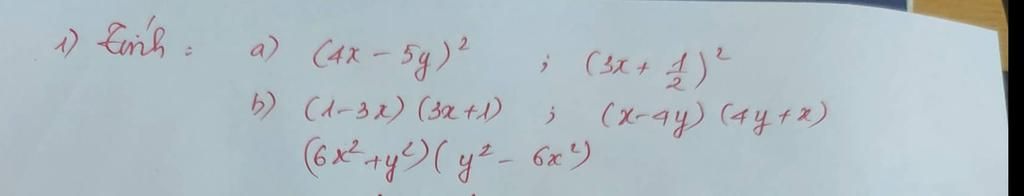 1) Tính : a) (4x - 5y)² ; (3x + 1/2)²
b) (1-3x) (3x+1) ; (x-4y) (4y+x)
(6x²+y²)( y² - 6x²)